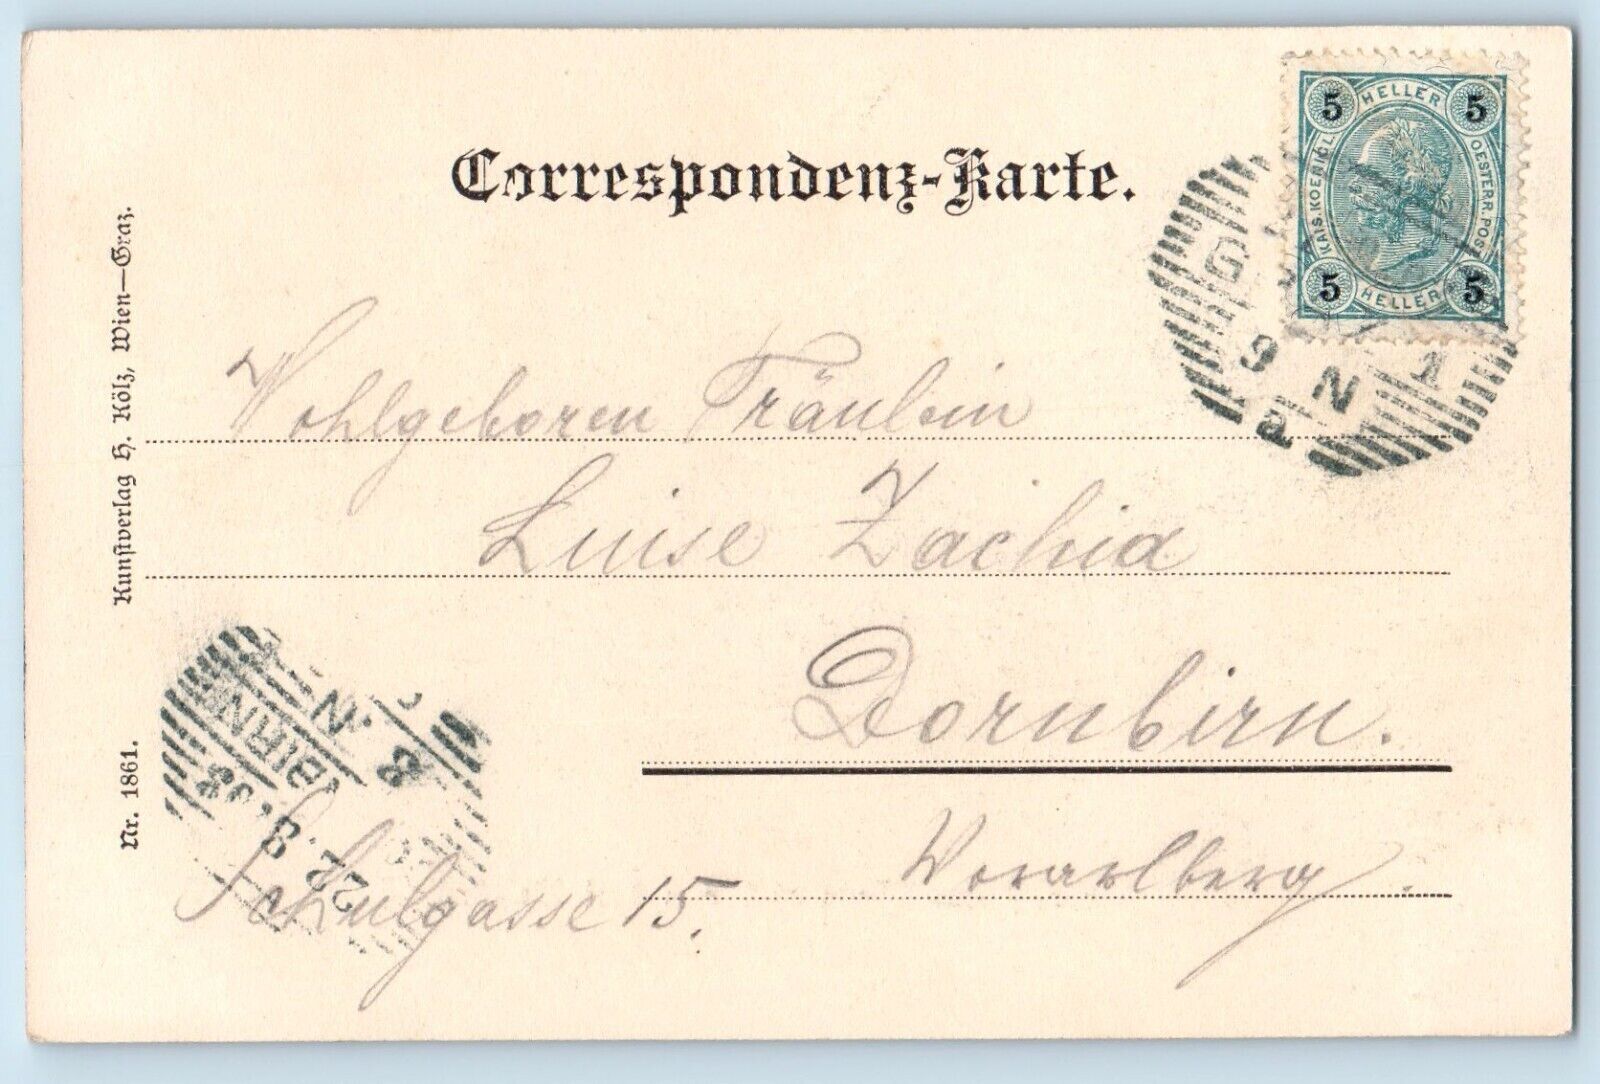 Correspondenz-Karte.
5 HELLER 5
KAIS. KOENIGL. OESTERR. POST
5 HELLER 5
9 N 1
Wohlgeboren Fräulein
Luise Zachia
Dornbirn.
Vorarlberg.
Schulgasse 15.
BIRN
8. N
22. 8.
Kunstverlag H. Kölz, Wien—Graz.
Nr. 1861.